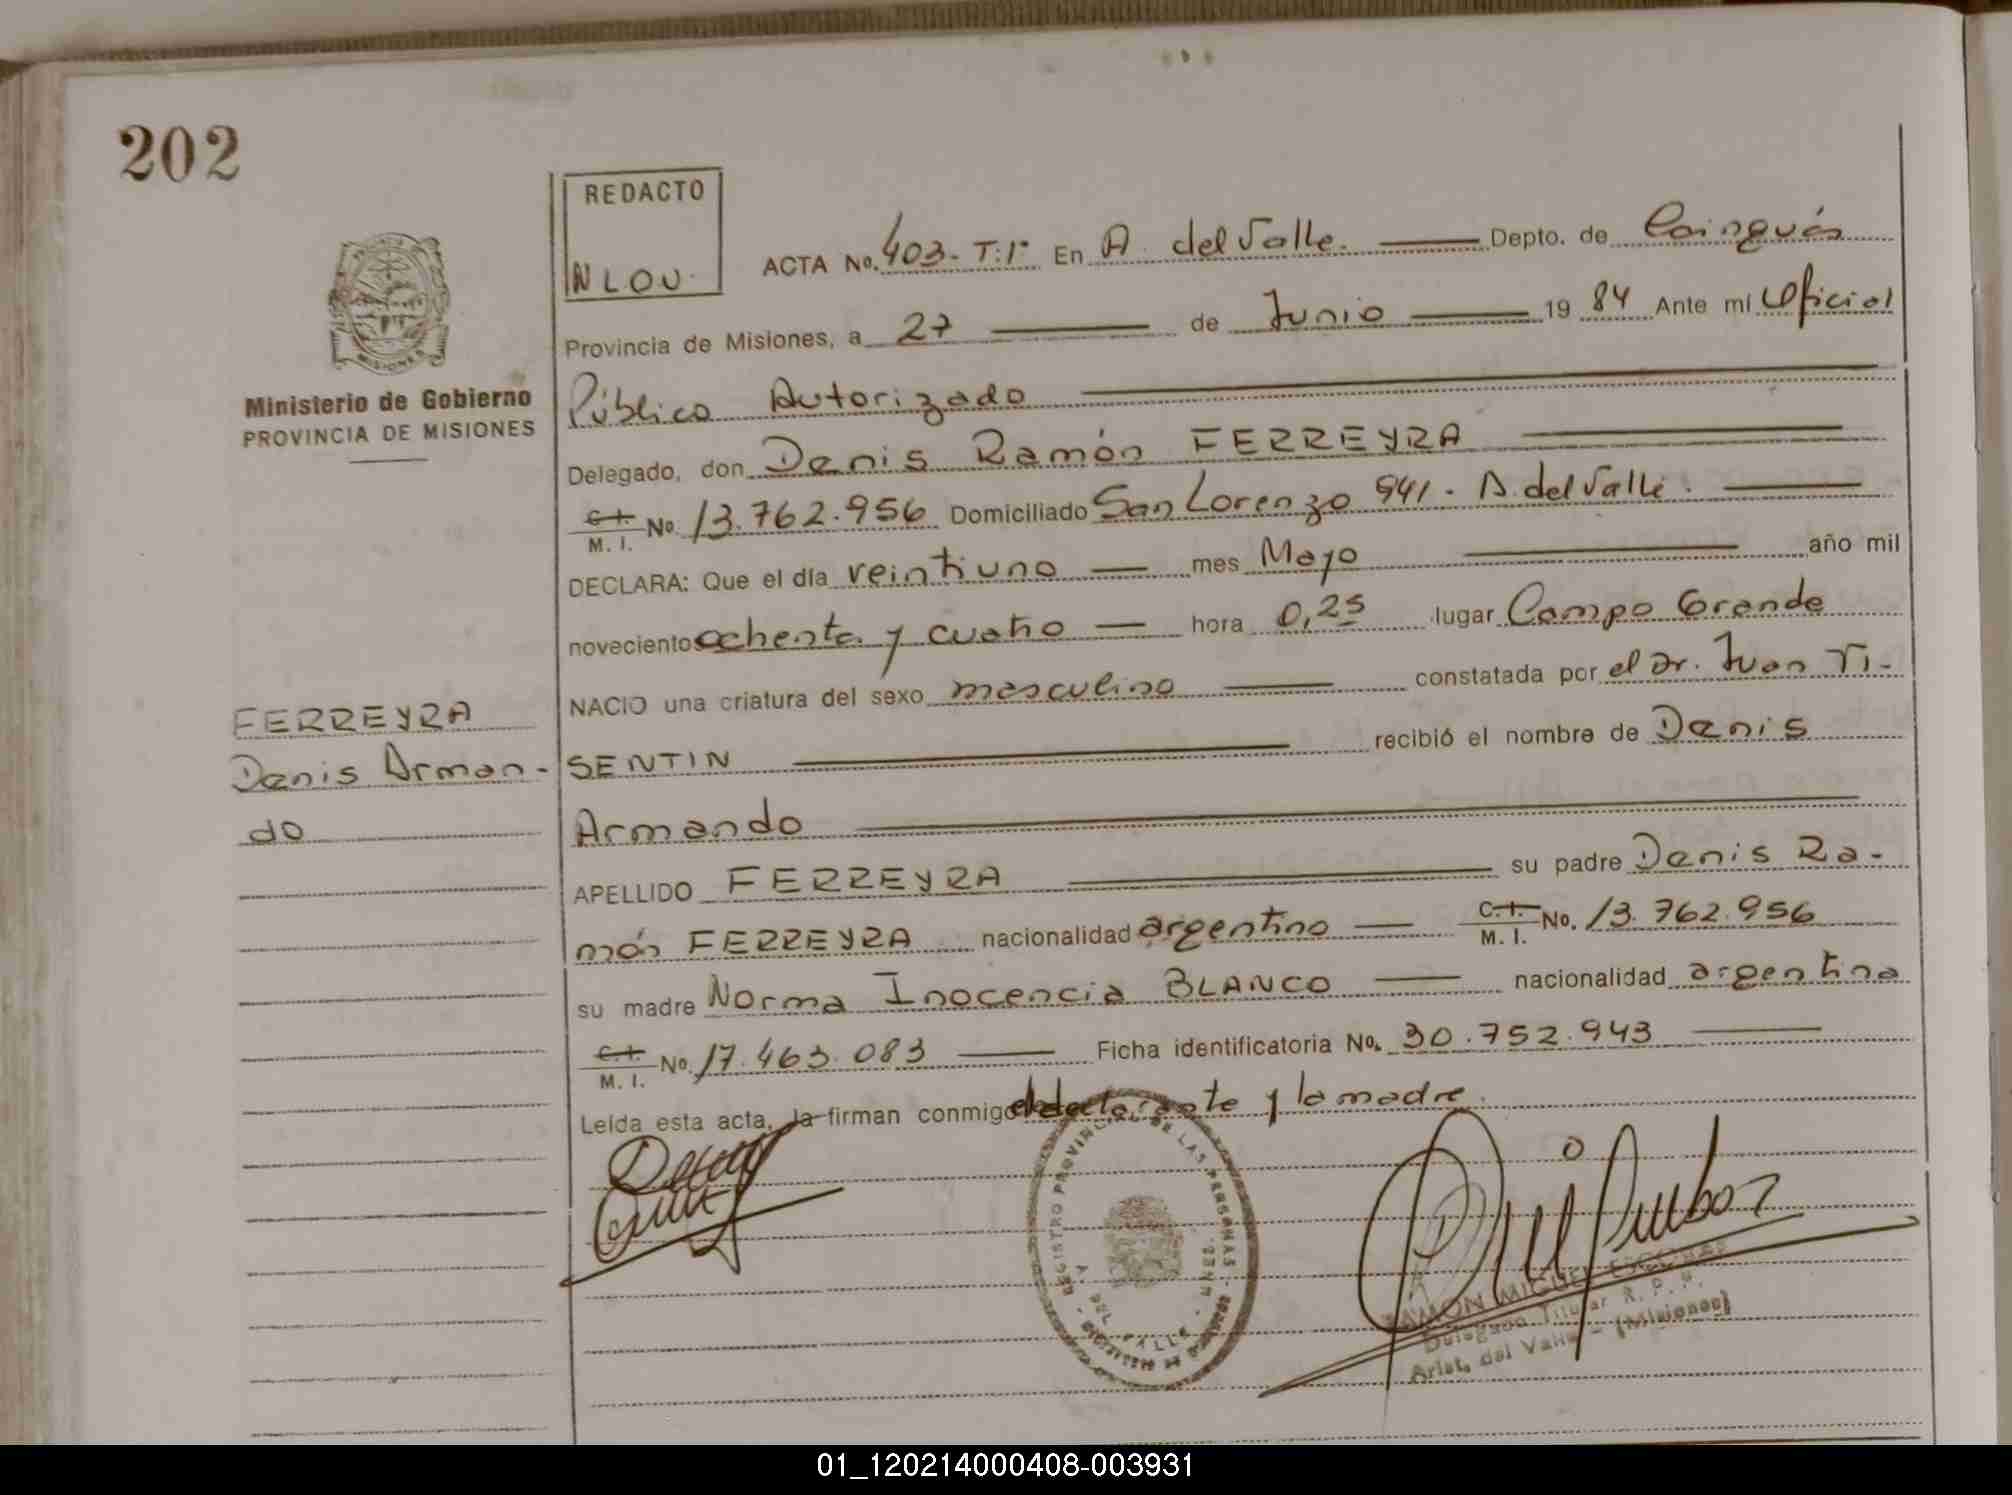 202
REDACTO
N LOU.
ACTA No. 403 - T: 1° En A. del Valle. Depto. de Cainguás
Provincia de Misiones, a 27 de Junio 19 84 Ante mí Oficial
MISIONES
Ministerio de Gobierno
PROVINCIA DE MISIONES
Público Autorizado
Delegado, don Denis Ramón FERREYRA
C. I. M. I. No. 13.762.956 Domiciliado San Lorenzo 941 - A. del Valle.
DECLARA: Que el día veintiuno mes Mayo año mil
noveciento ochenta y cuatro hora 0,25 lugar Campo Grande
NACIO una criatura del sexo masculino constatada por el Dr. Juan TI-
SENTIN recibió el nombre de Denis
FERREYRA
Denis Arman-
do
Armando
APELLIDO FERREYRA su padre Denis Ra-
món FERREYRA nacionalidad argentino C. I. M. I. No. 13.762.956
su madre Norma Inocencia BLANCO nacionalidad argentina
C. I. M. I. No. 17.463.083 Ficha identificatoria No. 30.752.943
Leída esta acta, la firman conmigo el declarante y la madre.
REGISTRO PROVINCIAL DE LAS PERSONAS
A. DEL VALLE
RAMON MIGUEL ESCOBAR
Delegado Titular R. P. P.
Arist. del Valle - (Misiones)
01_120214000408-003931